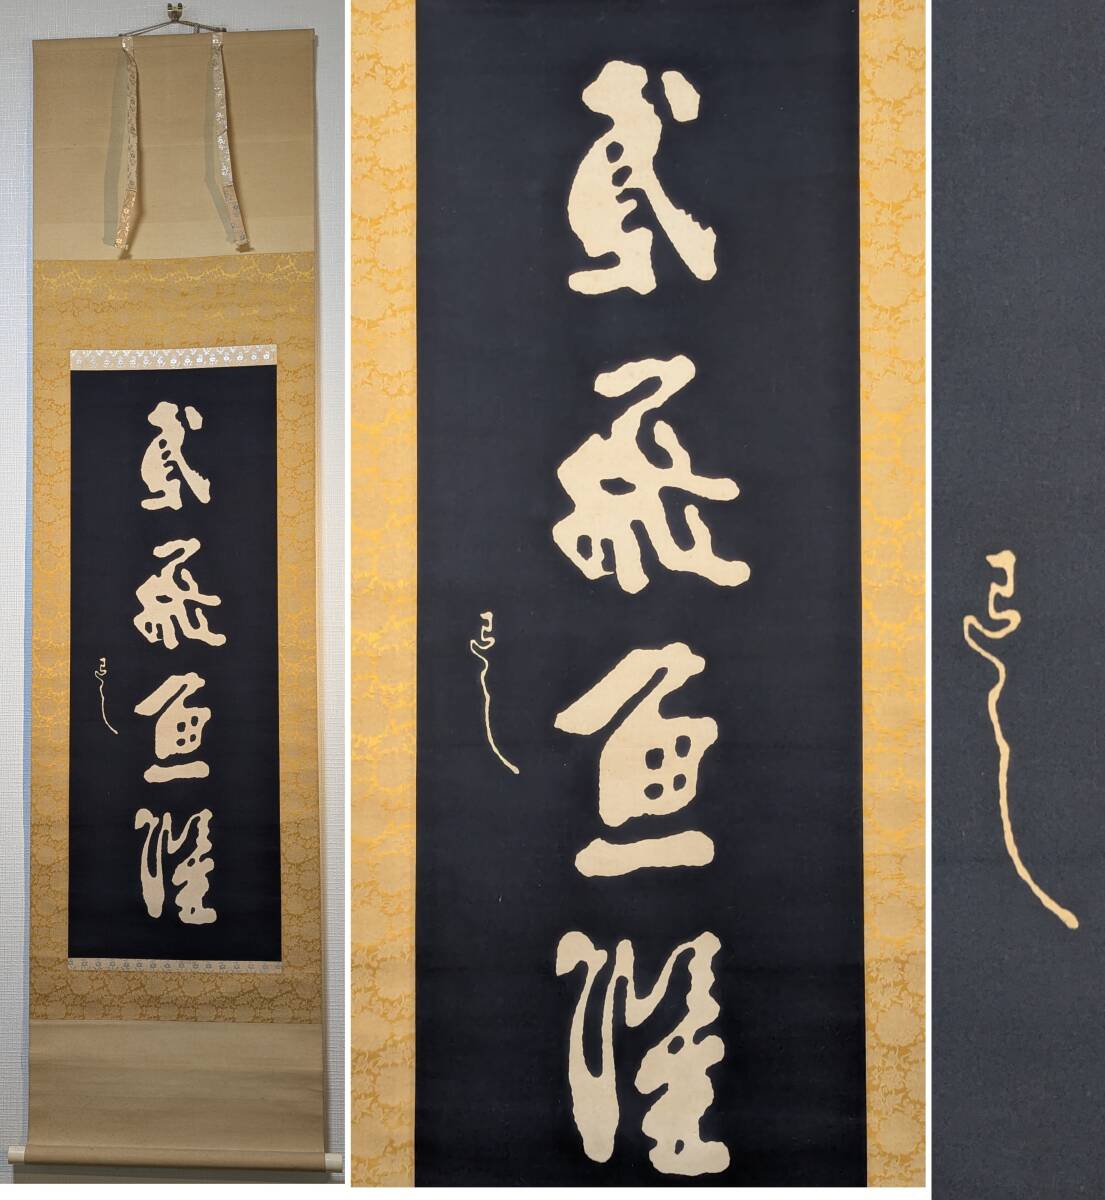 鳶飛魚躍
鳶飛魚躍